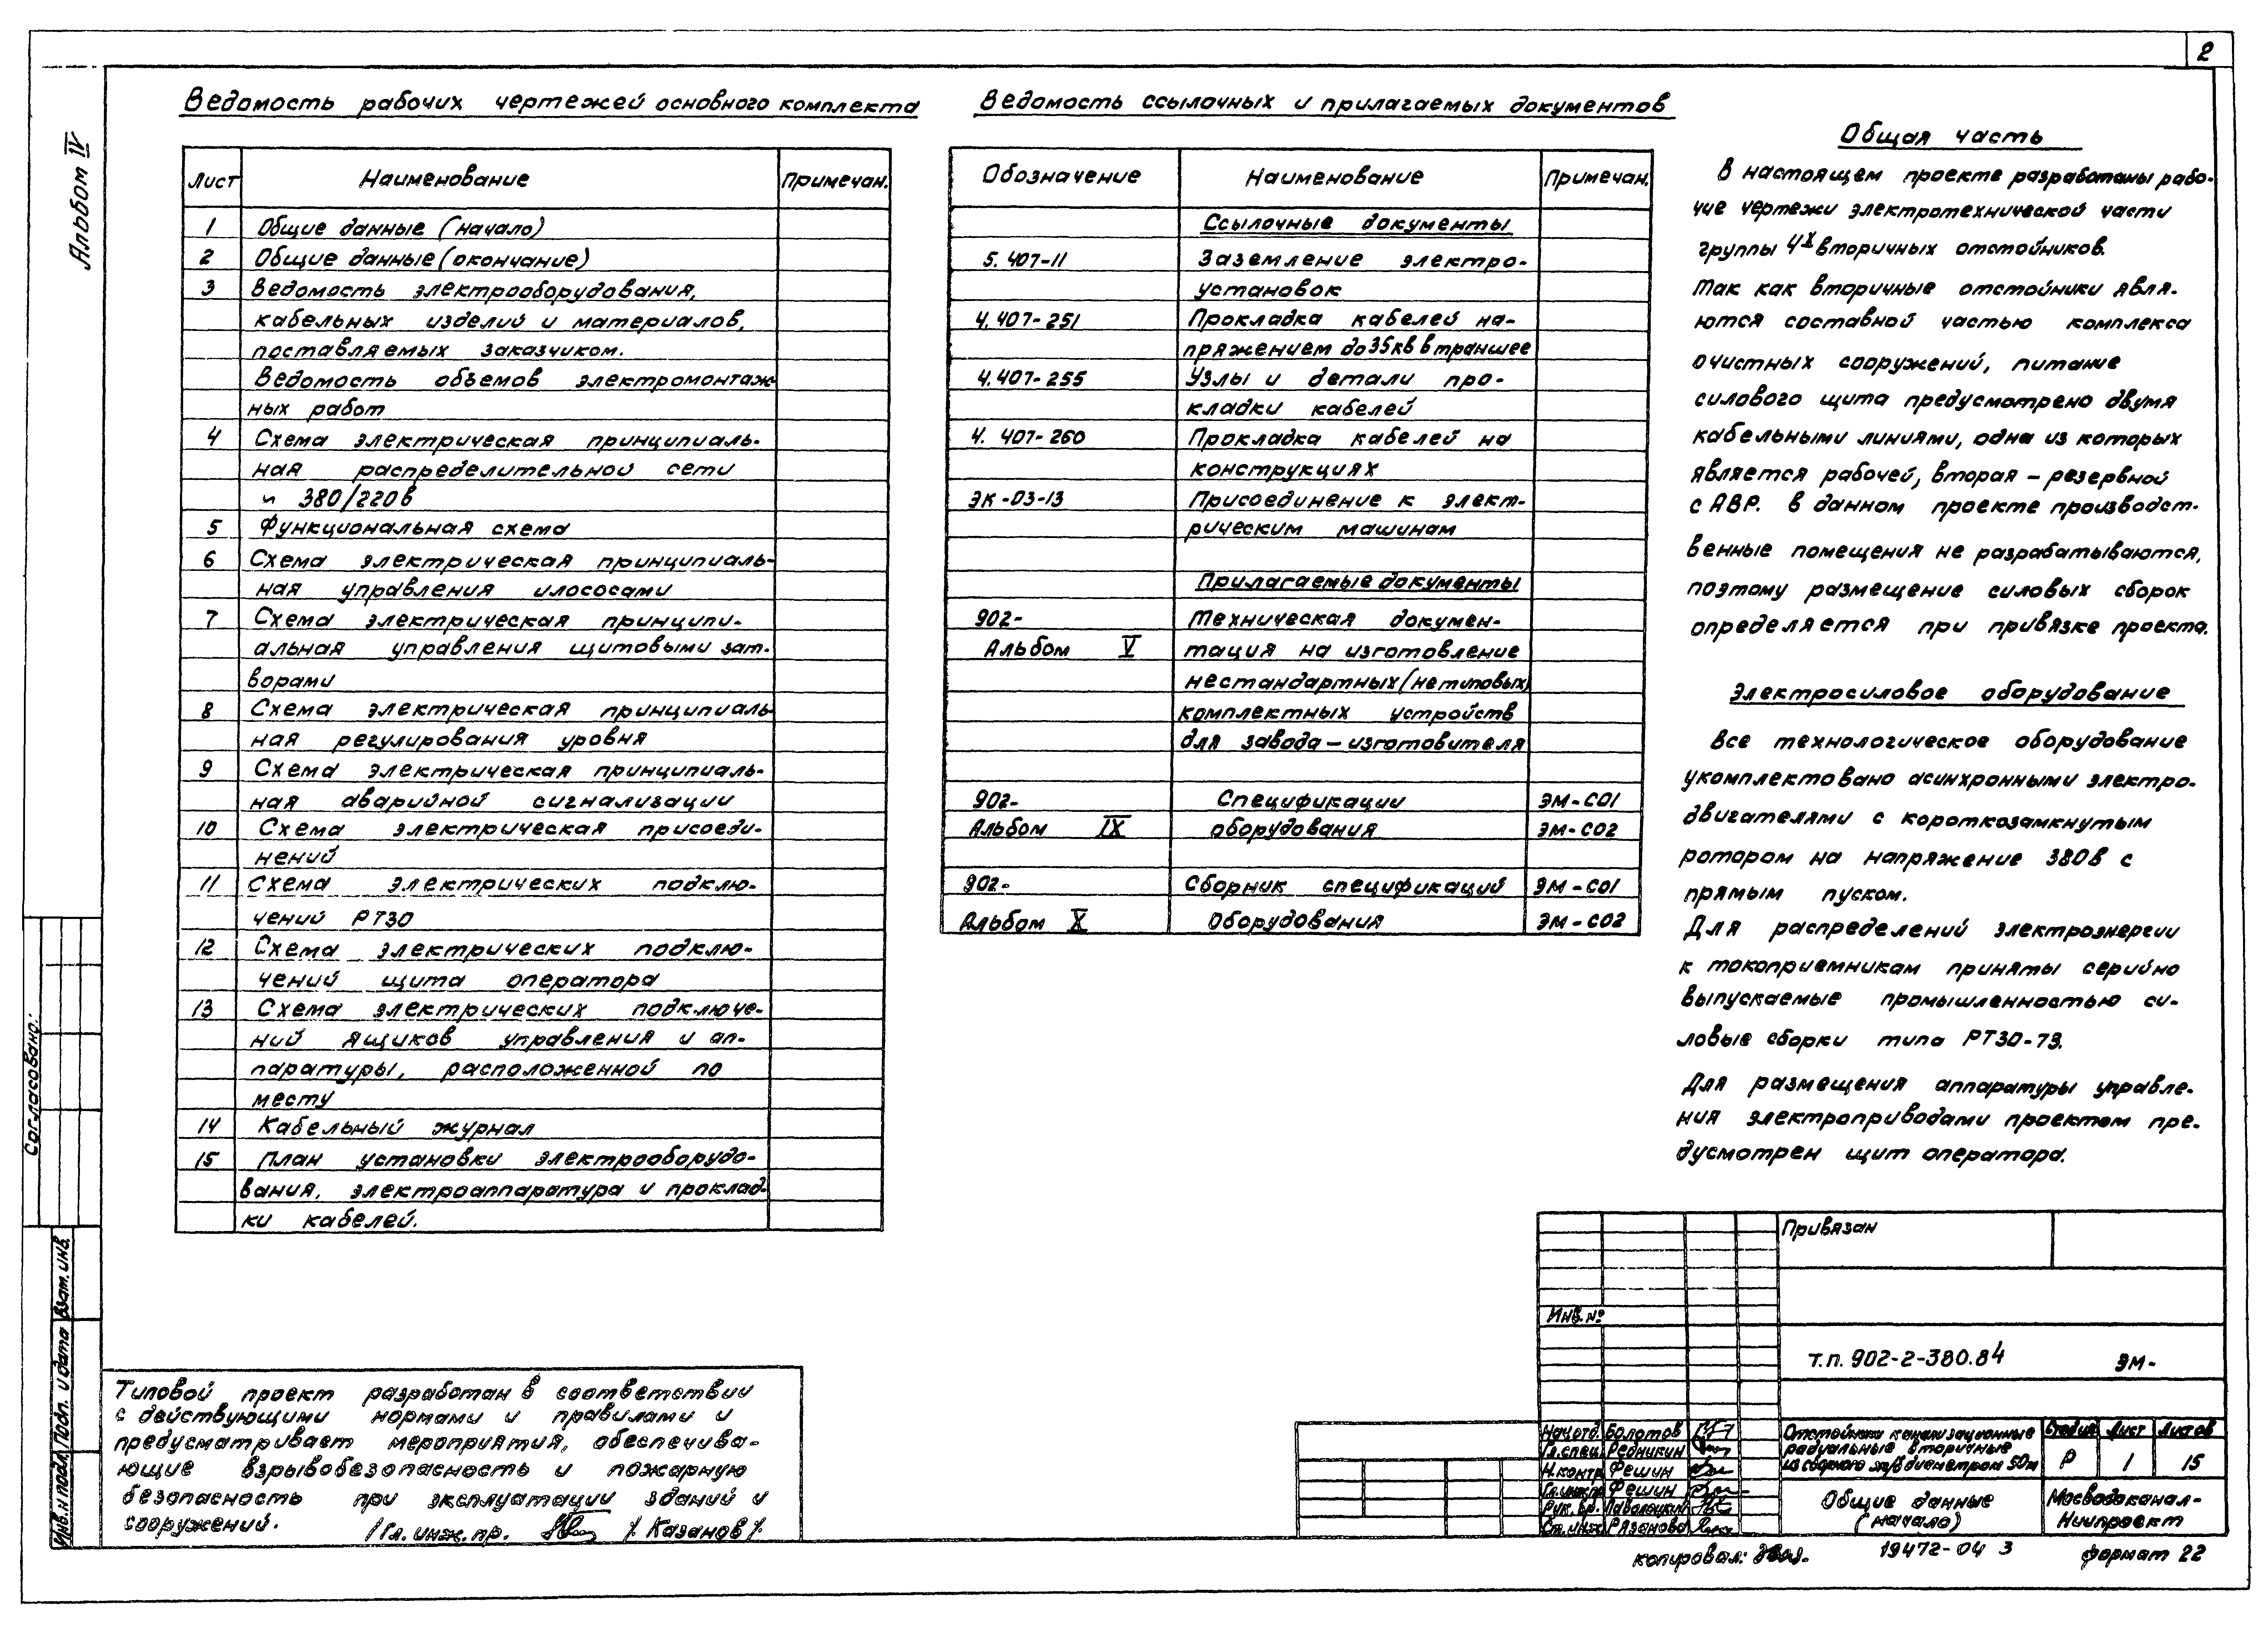 2
Альбом IV
Ведомость рабочих чертежей основного комплекта
Лист Наименование Примечан.
1 Общие данные (начало)
2 Общие данные (окончание)
3 Ведомость электрооборудования,
кабельных изделий и материалов,
поставляемых заказчиком.
Ведомость объемов электромонтаж-
ных работ
4 Схема электрическая принципиаль-
ная распределительной сети
~ 380/220в
5 Функциональная схема
6 Схема электрическая принципиаль-
ная управления илососами
7 Схема электрическая принципи-
альная управления щитовыми зат-
ворами
8 Схема электрическая принципиаль-
ная регулирования уровня
9 Схема электрическая принципиаль-
ная аварийной сигнализации
10 Схема электрическая присоеди-
нений
11 Схема электрических подклю-
чений РТ30
12 Схема электрических подклю-
чений щита оператора
13 Схема электрических подключе-
ний ящиков управления и ап-
паратуры, расположенной по
месту
14 Кабельный журнал
15 План установки электрооборудо-
вания, электроаппаратура и проклад-
ки кабелей.
Ведомость ссылочных и прилагаемых документов
Обозначение Наименование Примечан.
Ссылочные документы
5.407-11 Заземление электро-
установок
4.407-251 Прокладка кабелей на-
пряжением до 35кв в траншее
4.407-255 Узлы и детали про-
кладки кабелей
4.407-260 Прокладка кабелей на
конструкциях
ЭК-03-13 Присоединение к элект-
рическим машинам
Прилагаемые документы
902- Техническая докумен-
Альбом V тация на изготовление
нестандартных (нетиповых)
комплектных устройств
для завода-изготовителя
902- Спецификации ЭМ-С01
Альбом IX оборудования ЭМ-С02
902- Сборник спецификаций ЭМ-С01
Альбом X Оборудования ЭМ-С02
Общая часть
В настоящем проекте разработаны рабо-
чие чертежи электротехнической части
группы 4х вторичных отстойников.
Так как вторичные отстойники явля-
ются составной частью комплекса
очистных сооружений, питание
силового щита предусмотрено двумя
кабельными линиями, одна из которых
является рабочей, вторая - резервной
с АВР. В данном проекте производст-
венные помещения не разрабатываются,
поэтому размещение силовых сборок
определяется при привязке проекта.
Электросиловое оборудование
Все технологическое оборудование
укомплектовано асинхронными электро-
двигателями с короткозамкнутым
ротором на напряжение 380в с
прямым пуском.
Для распределений электроэнергии
к токоприемникам приняты серийно
выпускаемые промышленностью си-
ловые сборки типа РТ30-73.
Для размещения аппаратуры управле-
ния электроприводами проектом пре-
дусмотрен щит оператора.
Согласовано:
Инв. н подл. Подп. и дата Взам. инв.
Типовой проект разработан в соответствии
с действующими нормами и правилами и
предусматривает мероприятия, обеспечива-
ющие взрывобезопасность и пожарную
безопасность при эксплуатации зданий и
сооружений.
/Гл. инж. пр. /Казанов/
Привязан
Инв. №
Т.п. 902-2-380.84 ЭМ-
Нач.отд. Болотов
Гл.спец. Редникин
Н.контр. Фешин
Гл.инж.пр. Фешин
Рук. бр.
Ст.инж. Рязанова
Отстойники канализационные
радиальные вторичные
из сборного ж/б диаметром 50м
Стадия Лист Листов
Р 1 15
Общие данные
(начало)
Мосводоканал-
Ниипроект
копировал:
19472-04 3
формат 22